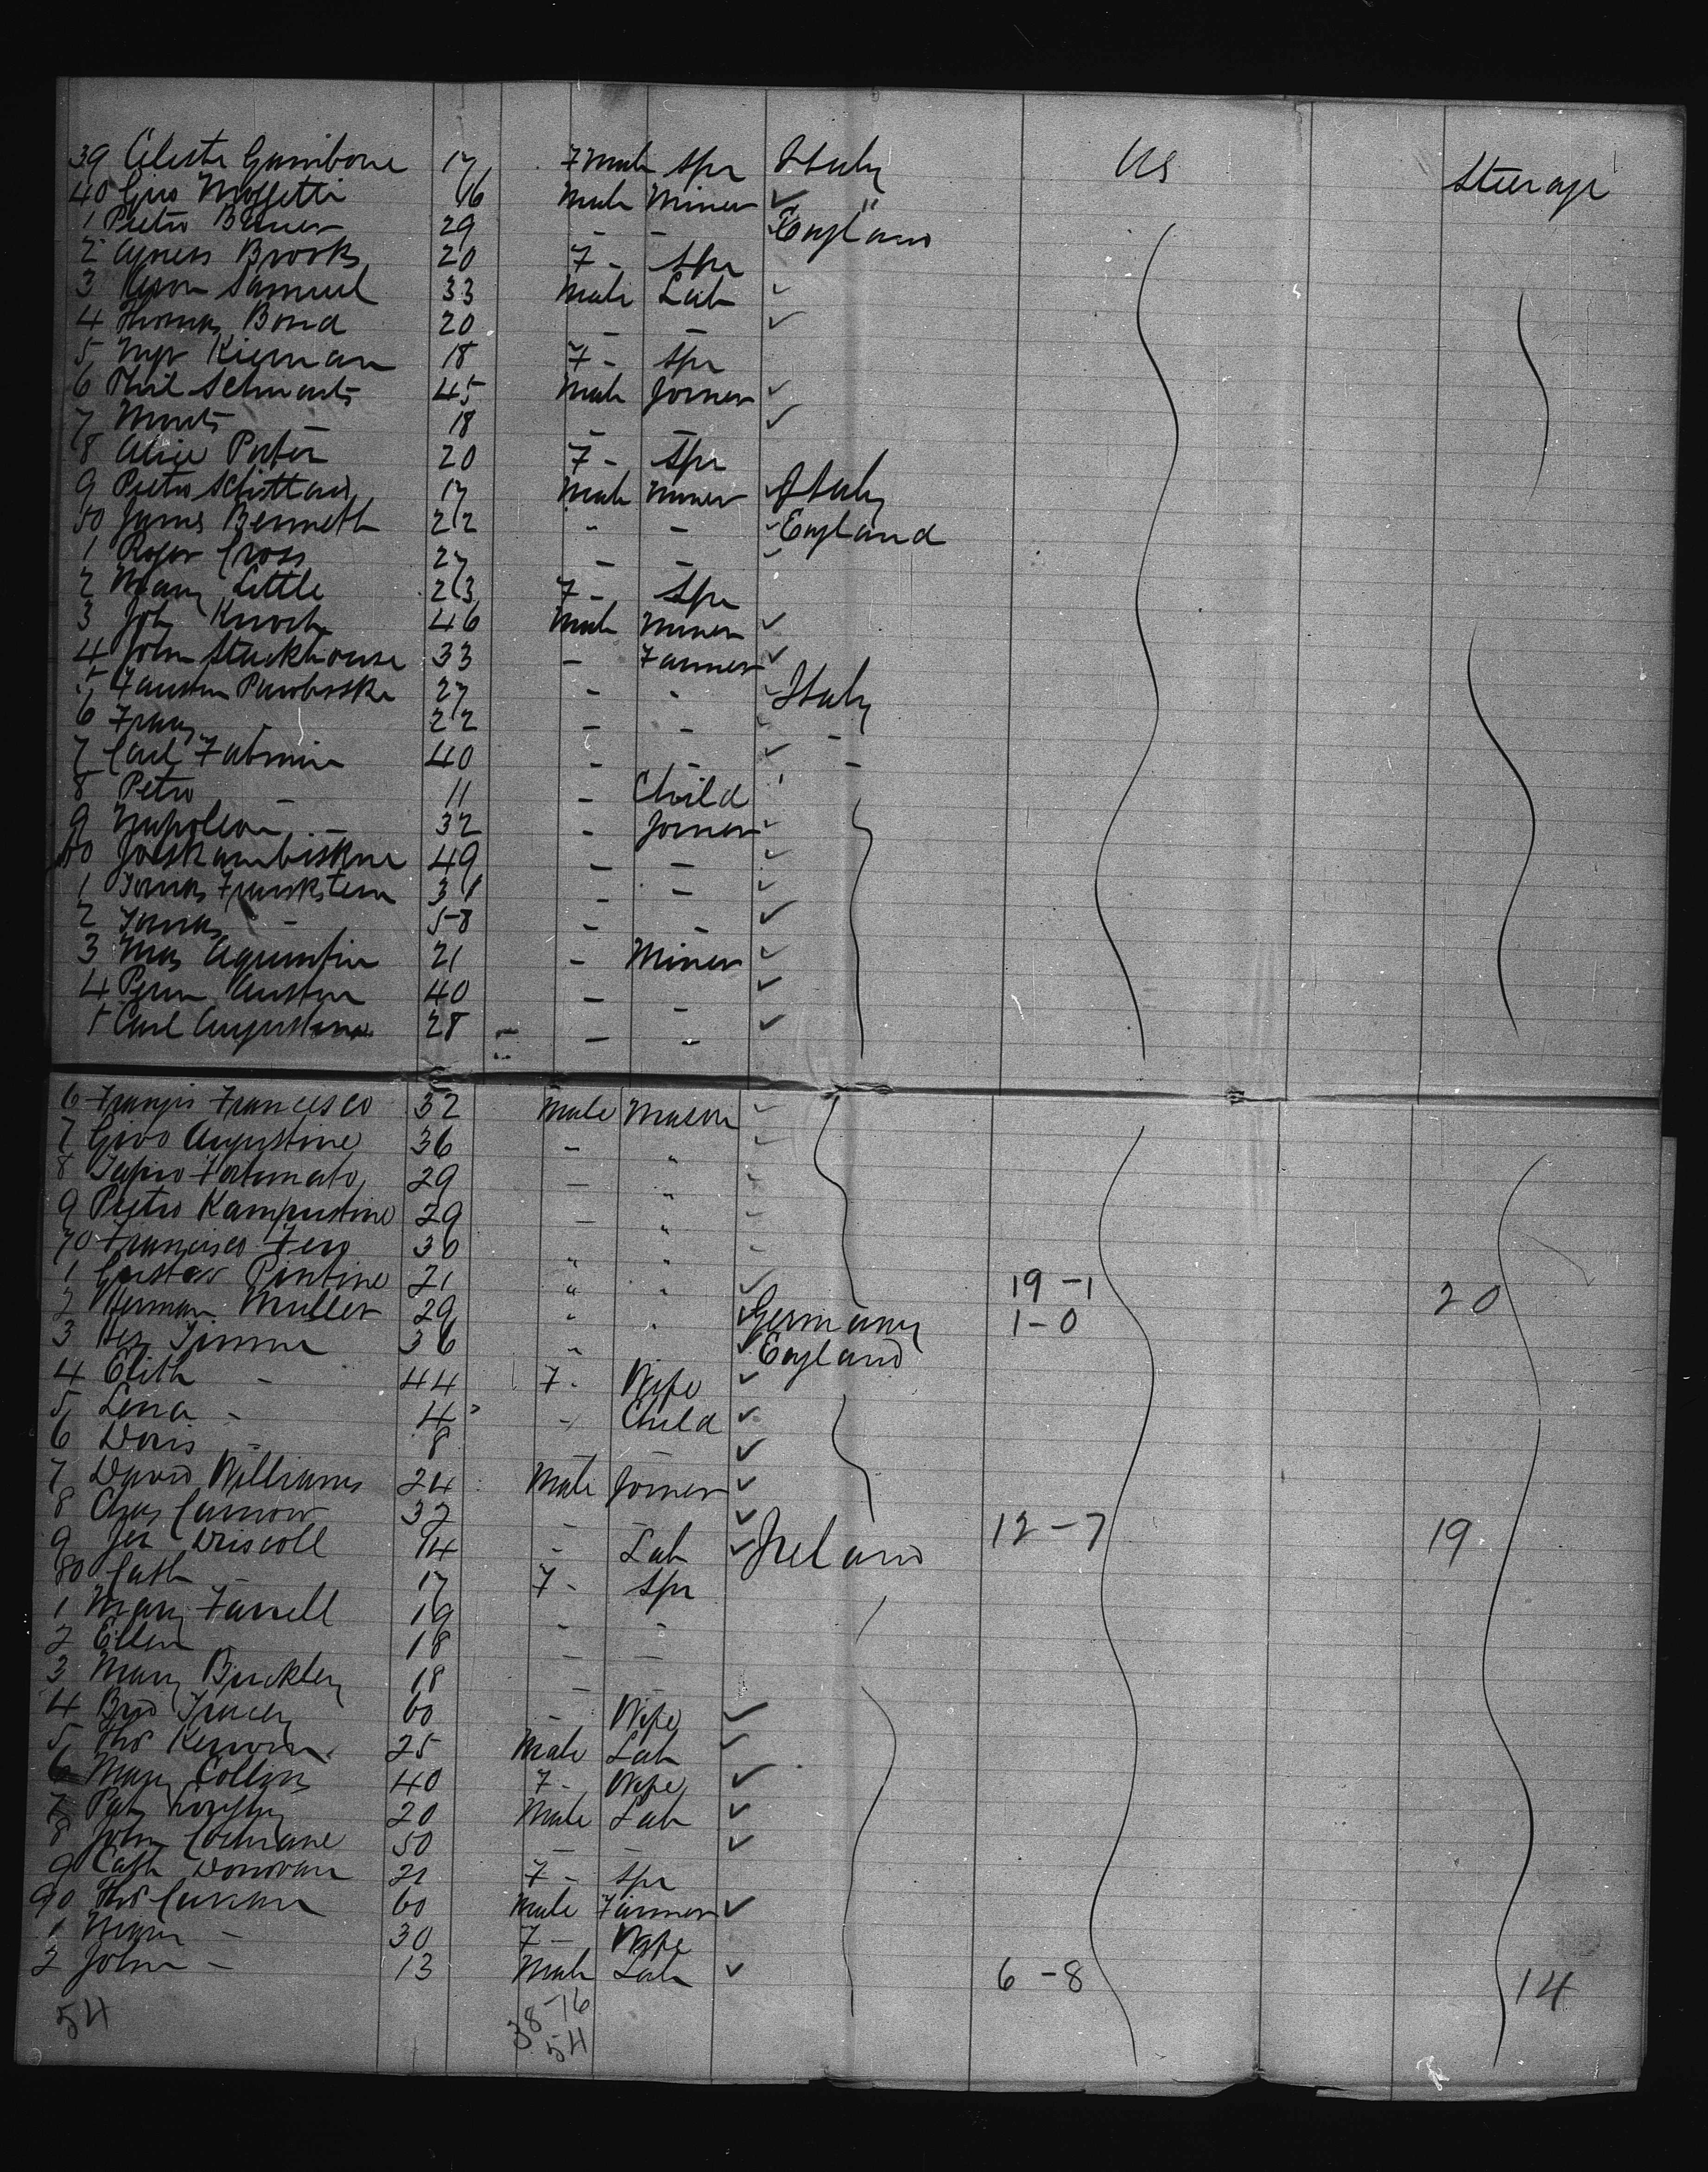 39 Celeste Gambone 17 Fmale Spr Italy US Steerage
40 Gius Moffetti 16 Male Miner "
1 Pietro Bauer 29 - - England
2 Agness Brooks 20 F - Spr
3 Samuel 33 Male Lab
4 Thomas Bond 20 - -
5 Kiernan 18 F - Spr
6 Phil Schwarts 45 Male Joiner
7 Morits 18 - -
8 Alice Porter 20 F - Spr
9 Pietro 17 Male Miner Italy
50 James Bennett 22 - - England
1 Roger Cross 27 - -
2 Mary Little 23 F - Spr
3 Joh Knoch 46 Male Miner
4 John Stackhouse 33 - Farmer
5 27 - - Italy
6 Franz 22 - - -
7 Carl 40 - - -
8 Petro - 11 - Child
9 Napoleon - 32 - Joiner
60 49 - -
1 31 - -
2 Jonas - 58 - -
3 21 - Miner
4 40 - -
5 Carl Augustine 28 - - -
6 Francesco 32 Male Mason
7 Givo Augustine 36 - "
8 Fortunato 29 - "
9 Pietro Kampustino 29 - "
70 Francisco Fero 30 " "
1 Gustav Pintine 21 " " 19-1 20
2 Herman Muller 29 " " Germany 1-0
3 36 " England
4 Edith - 44 F - Wife
5 Lena - 4 - Child
6 Doris - 8
7 David Williams 24 Male Joiner
8 Chas 32 - - 12-7 19
9 Jer Driscoll 14 - Lab Ireland
80 Cath - 17 F - Spr
1 Mary Farrell 19 - -
2 Ellen - 18 - -
3 Mary Buckley 18 - -
4 Brid Tracey 60 - Wife
5 Thos 25 Male Lab
6 Mary Collins 40 F - Wife
7 Pat 20 Male Lab
8 John Cochrane 50 - -
9 Cath Donovan 21 F - Spr
90 Thos Curran 60 Male Farmer
1 Mary - 30 F - Wife
2 John - 13 Male Lab 6-8 14
54 38-16
54